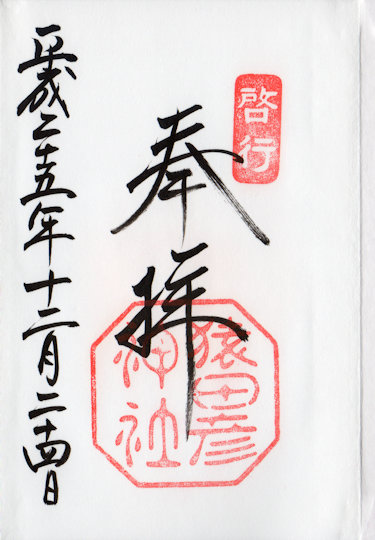 啓行
奉拝
猿田彦
神社
平成二十五年十二月二十四日